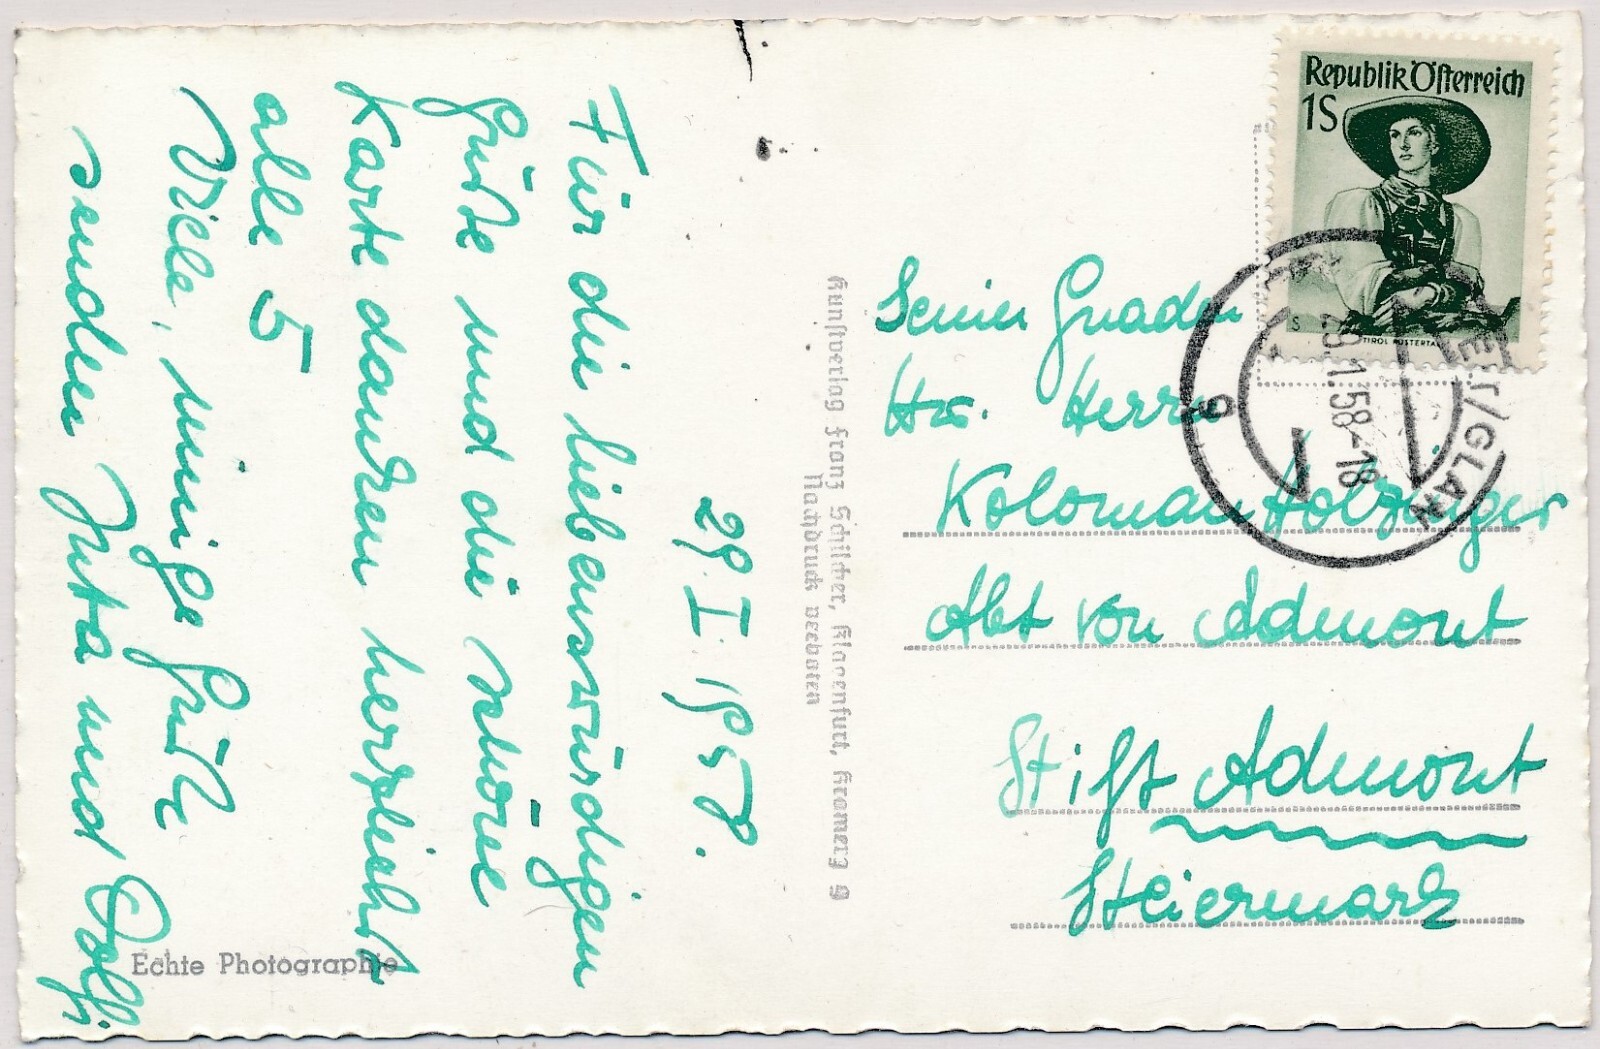 29. I. 1958.
Für die liebenswürdigen
Grüße und die schöne
Karte danken herzlichst
alle 5
Viele, innige Grüße
senden Juta und Dolfi
Echte Photographie
Kunstverlag Franz Schilcher, Klagenfurt, Kramerg 9
Nachdruck verboten
Republik Österreich
1S
TIROL PUSTERTAL
29.1.58-18
EIT/GLAN
Seiner Gnaden
Hw. Herrn
Koloman Holzinger
Abt von Admont
Stift Admont
Steiermark